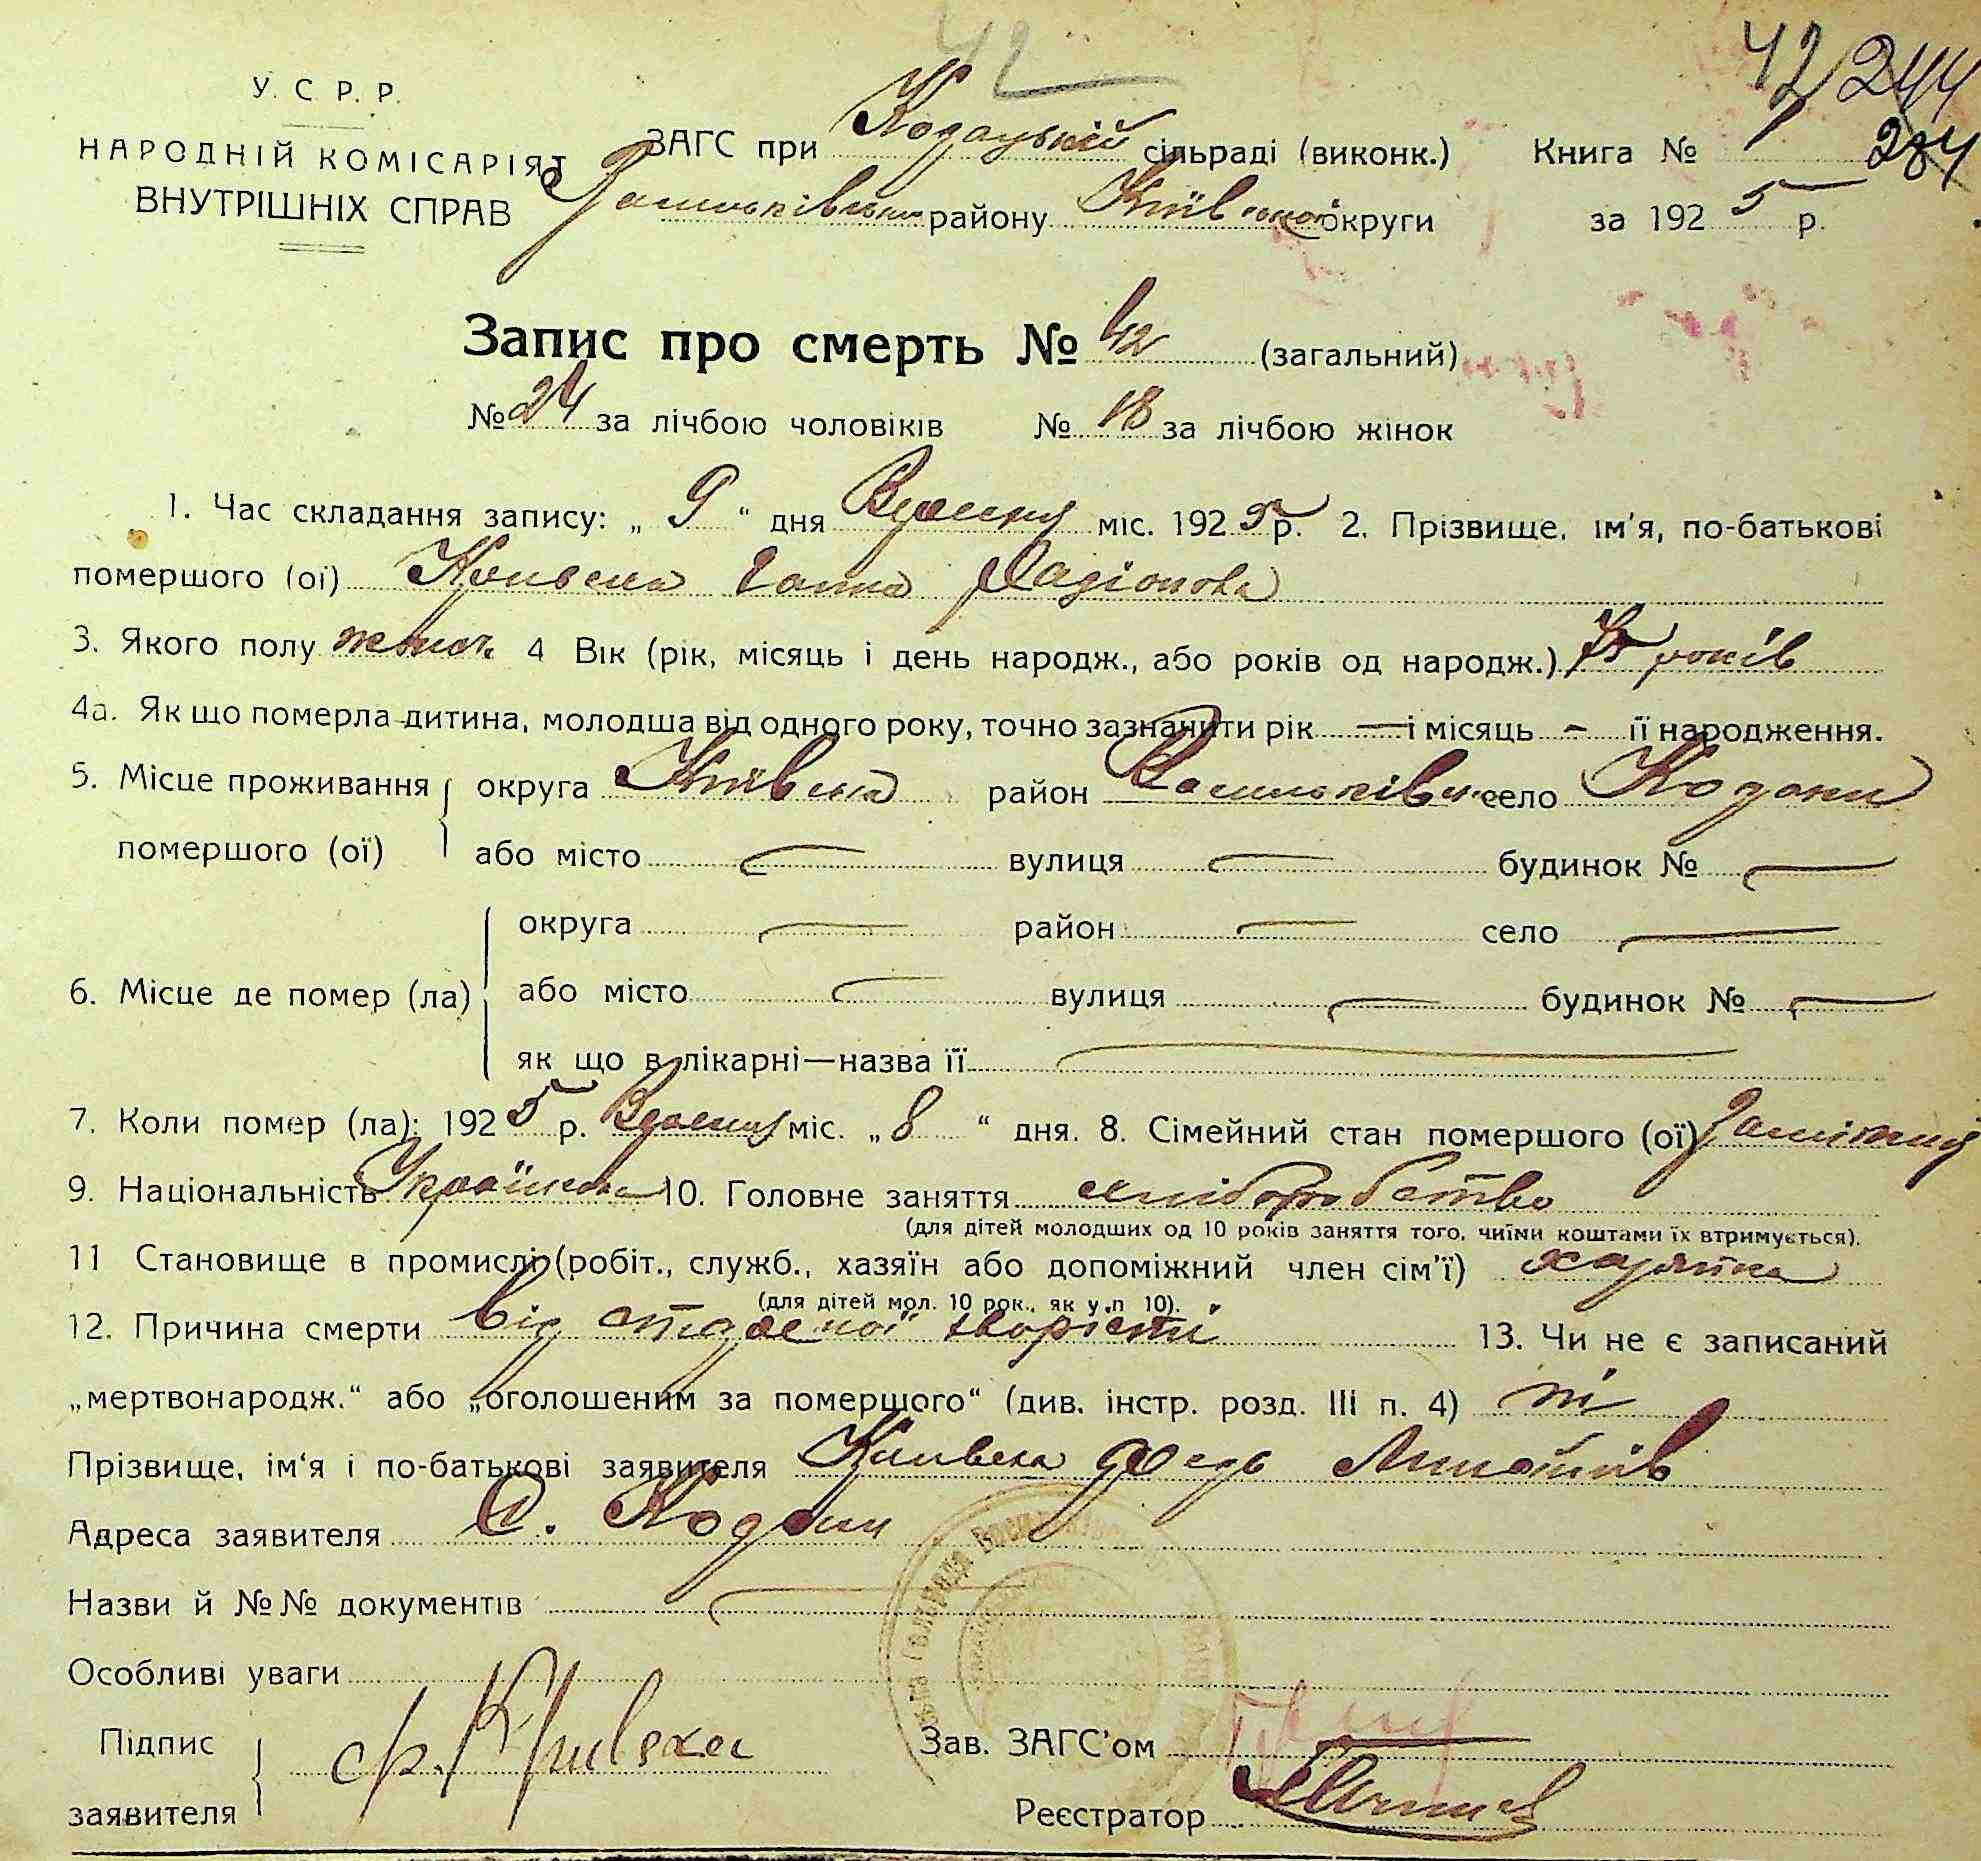 42
42 244
У. С. Р. Р.
НАРОДНІЙ КОМІСАРІЯТ
ВНУТРІШНІХ СПРАВ
ЗАГС при Кодацькій сільраді (виконк.) Книга № 284
Васильківськ району Київської округи за 1925 р.
Запис про смерть № 42 (загальний)
№ 24 за лічбою чоловіків № 18 за лічбою жінок
1. Час складання запису: „ 9 “ дня міс. 1925 р. 2. Прізвище, ім'я, по-батькові
помершого (ої) Кривека Ганна Радіонова
3. Якого полу жіноч. 4 Вік (рік, місяць і день народж., або років од народж.) 75 років
4а. Як що померла дитина, молодша від одного року, точно зазначити рік — і місяць - її народження.
5. Місце проживання округа Київська район Васильківськ село Кодаки
помершого (ої) або місто — вулиця — будинок № —
округа — район — село —
6. Місце де помер (ла) або місто — вулиця — будинок № —
як що в лікарні—назва її —
7. Коли помер (ла): 1925 р. міс. „ 8 “ дня. 8. Сімейний стан помершого (ої) Заміжня
9. Національність Українка 10. Головне заняття хліборобство
(для дітей молодших од 10 років заняття того, чиїми коштами їх втримується).
11 Становище в промислі (робіт., служб., хазяїн або допоміжний член сім'ї) хазяйка
(для дітей мол. 10 рок., як у п 10).
12. Причина смерти від хворісті 13. Чи не є записаний
„мертвонародж.“ або „оголошеним за помершого“ (див. інстр. розд. III п. 4) ні
Прізвище, ім'я і по-батькові заявителя Кривека
Адреса заявителя с. Кодаки
Назви й №№ документів —
Особливі уваги
Підпис
заявителя ф. Кривека
Зав. ЗАГС'ом
Реєстратор